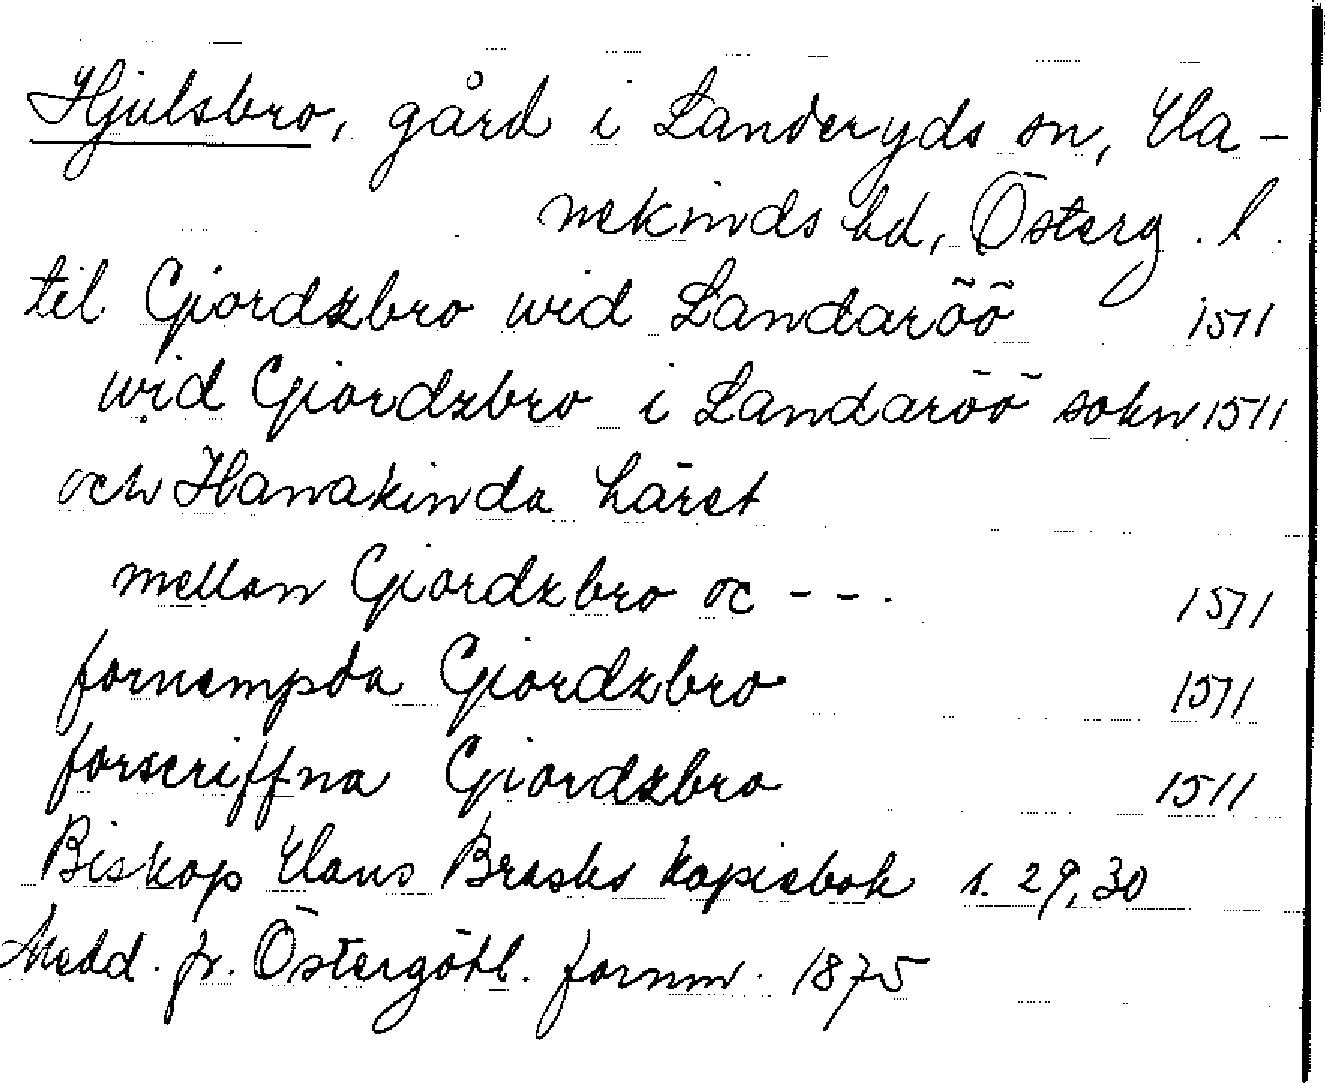 Hjulsbro, gård i Landeryds sn, Ha-
nekinds hd, Österg. l.
til Giordzbro wid Landaröö 1511
wid Giordzbro i Landaröö sokn 1511
och Hanakinda häret
mellan Giordzbro oc - - - 1511
fornempda Giordzbro 1511
forscriffna Giordzbro 1511
Biskop Hans Brasks kopiebok s. 29, 30
Medd. fr. Östergötl. fornm. 1875